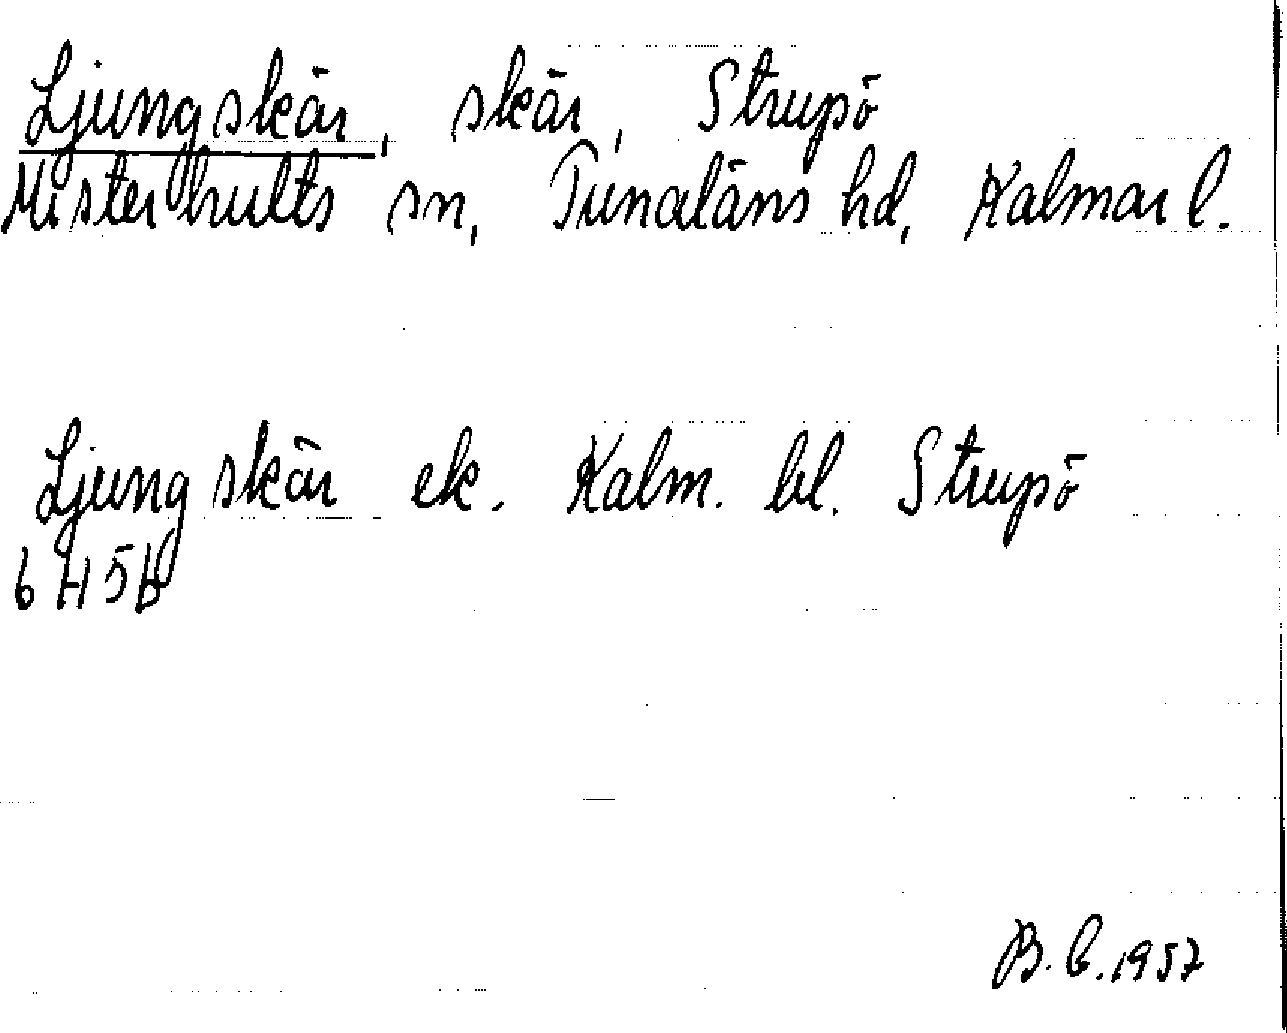 Ljungskär, skär, Strupö
Misterhults sn, Tunaläns hd, Kalmar l.
Ljungskär ek. Kalm. bl. Strupö
6H5b
B.C.1957